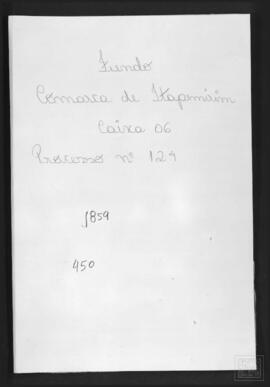 Fundo
Comarca de Itapemirim
Caixa 06
Processo nº 124
1859
450